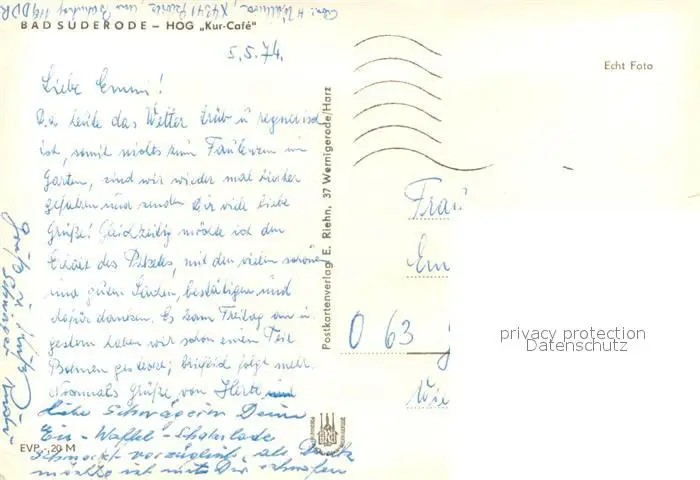 BAD SUDERODE – HOG „Kur-Café“
5.5.74.
Echt Foto
Liebe Emmi!
Da heute das Wetter trüb u regnerisch
ist, somit nichts zum Faulenzen im
Garten, sind wir wieder mal hierher
gefahren und senden Dir viele liebe
Grüße! Gleichzeitig möchte ich den
Erhalt des Pakets, mit den vielen schönen
und guten Sachen, bestätigen und
dafür danken. Es kam Freitag an u.
gestern haben wir schon einen Teil
gekostet; Brief folgt mehr.
Nochmals Grüße von
Liebe Schwägerin Deine
Eis-Waffel-Schokolade
schmeckt vorzüglich, als Dank
möchte ich mit Dir
EVP -,20 M
Postkartenverlag E. Riehn, 37 Wernigerode/Harz
Frau
Em
O 63
Wie
privacy protection
Datenschutz